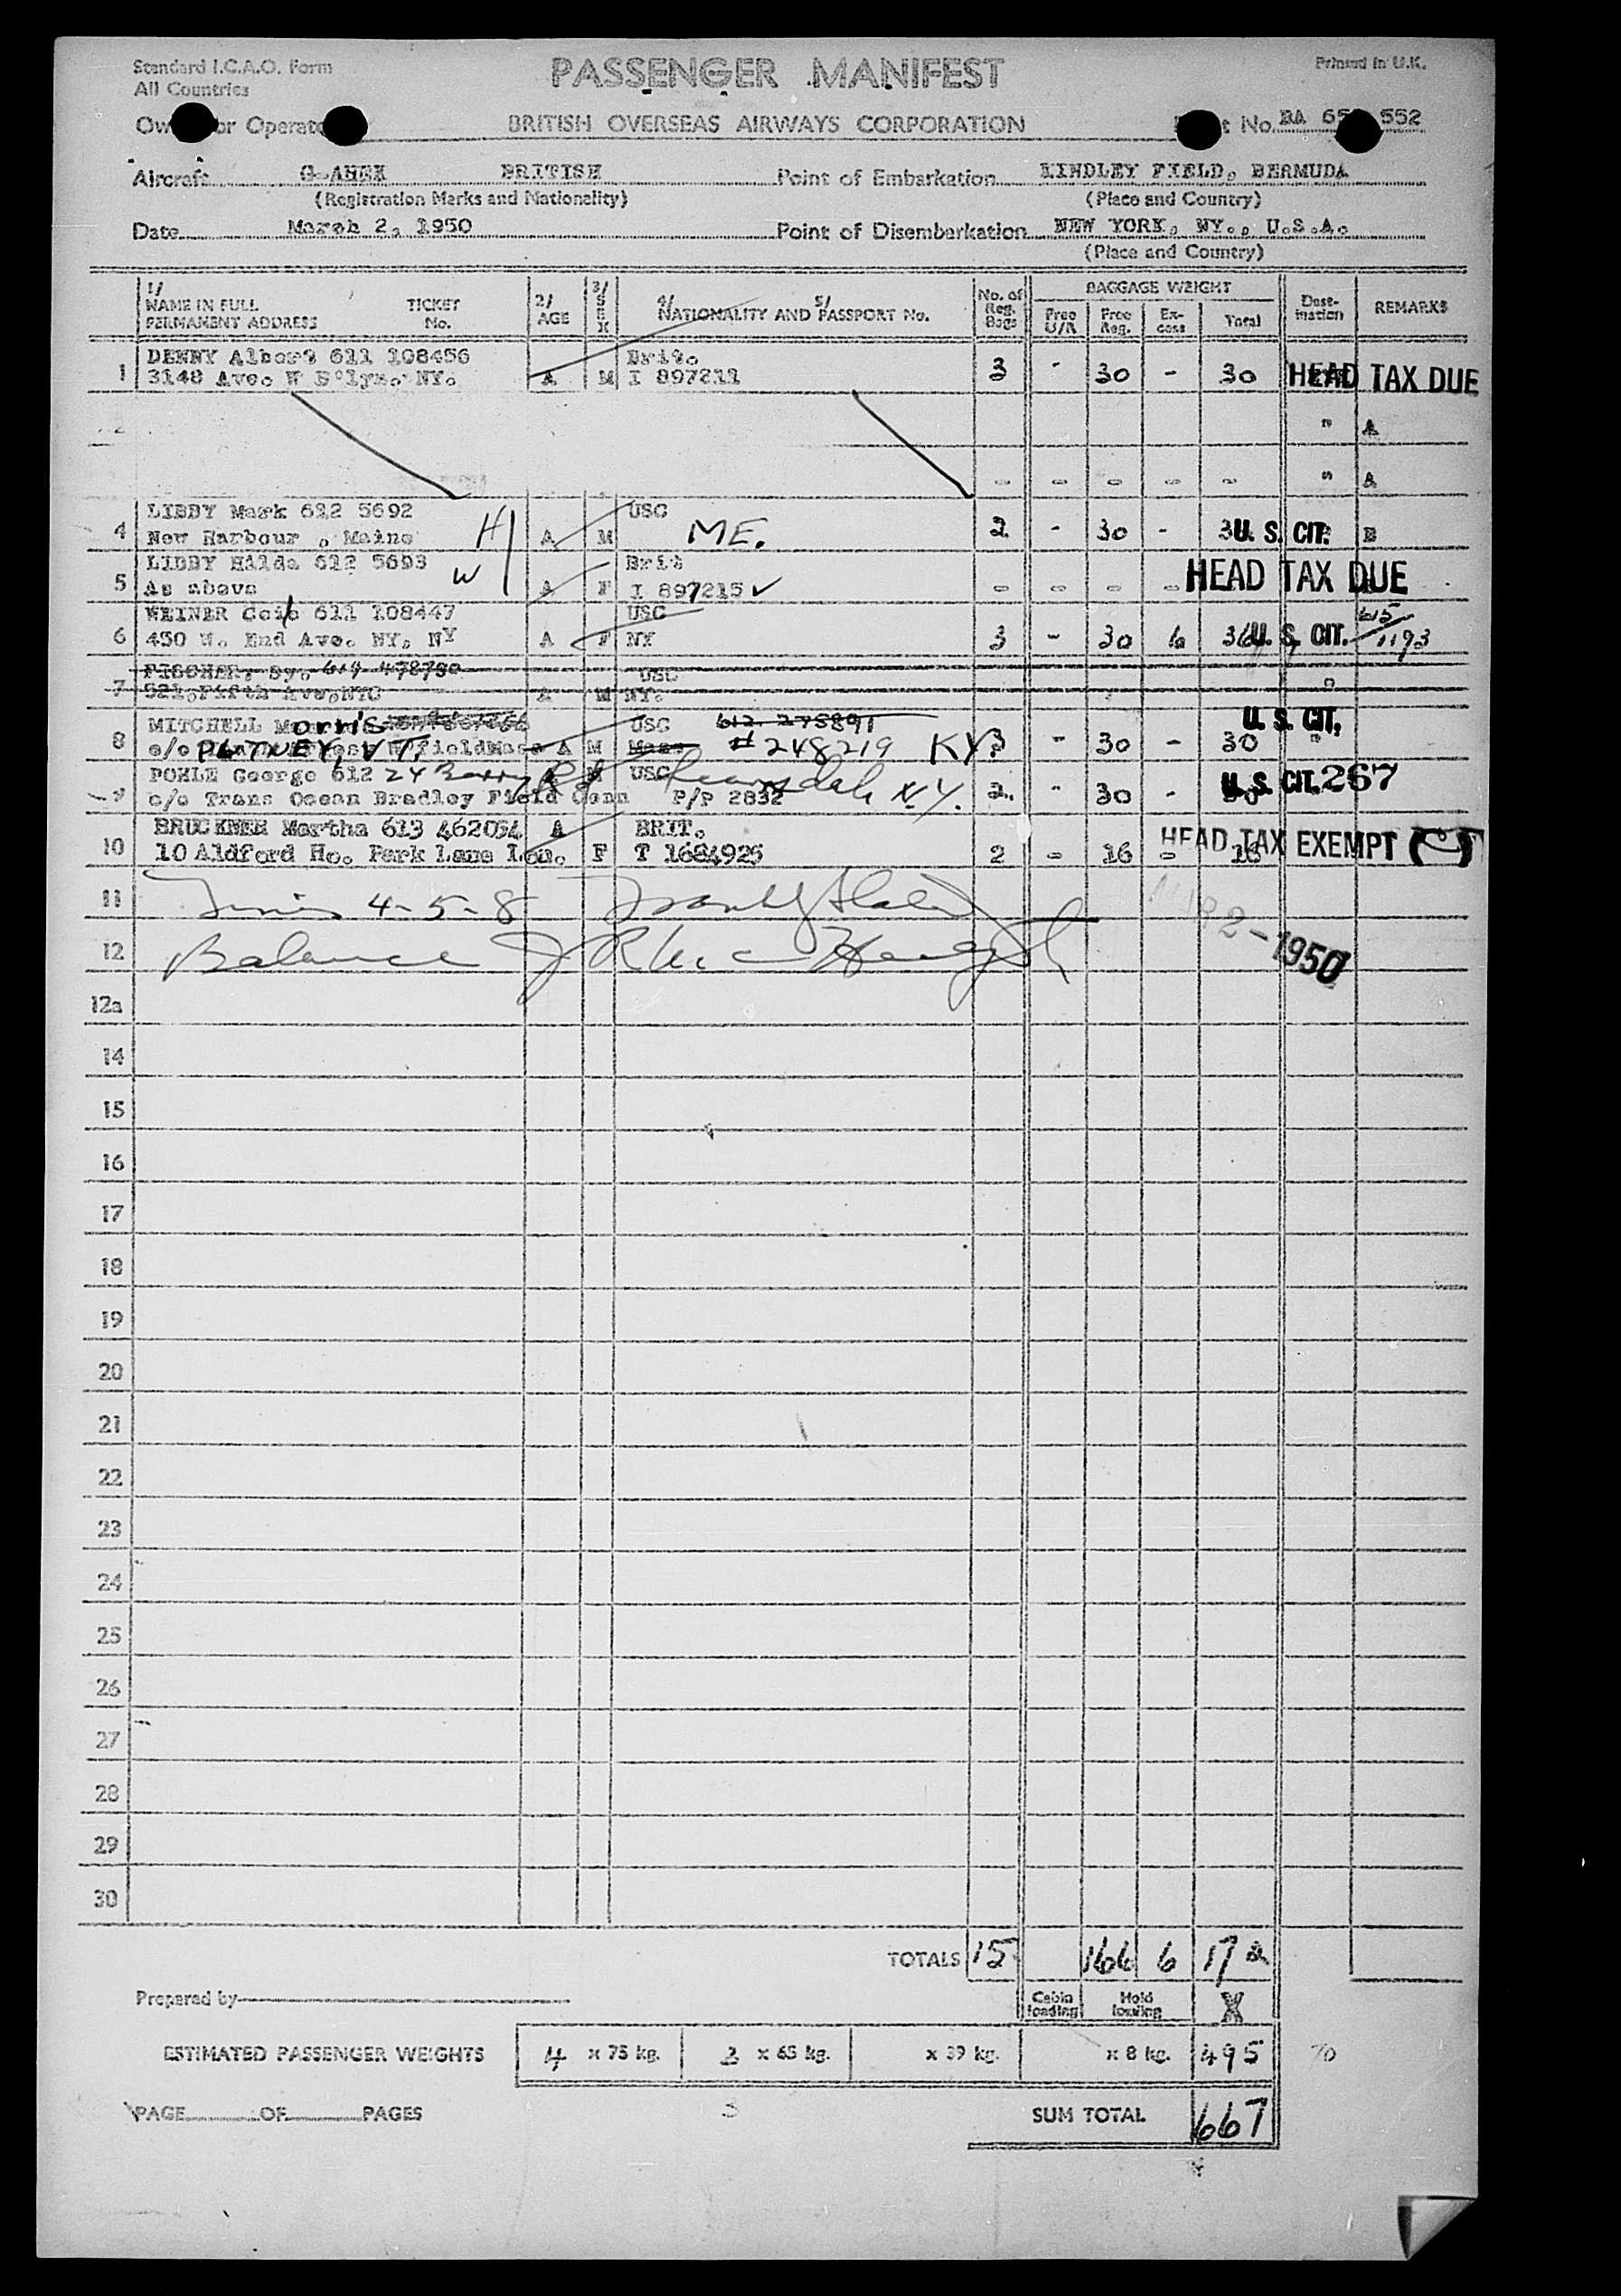 Standard I.C.A.O. Form
All Countries
PASSENGER MANIFEST
Printed in U.K.
BRITISH OVERSEAS AIRWAYS CORPORATION
No. BA 552
Aircraft BRITISH Point of Embarkation KINDLEY FIELD, BERMUDA
(Registration Marks and Nationality) (Place and Country)
Date March 2, 1950 Point of Disembarkation NEW YORK, NY., U.S.A.
(Place and Country)
1/ NAME IN FULL PERMANENT ADDRESS TICKET No. 2/ AGE 3/ SEX 4/ 5/ NATIONALITY AND PASSPORT No. No. of Reg. Bags BAGGAGE WEIGHT Free U/A Free Reg. Excess Total Destination REMARKS
DENNY Albert 611 108456 Brit.
1 3148 Ave. W B'lyn. NY. A M I 897211 3 - 30 - 30 HEAD TAX DUE
2 " A
- - - - - " A
LIBBY Mark 612 5692 USC
4 New Harbour, Maine H A M ME. 2 - 30 - U. S. CIT. B
LIBBY Hilda 612 5693 Brit
5 As above W A F I 897215 ✓ - - - - HEAD TAX DUE
WEINER 611 108447 USC
6 450 W. End Ave. NY, NY A F NY 3 - 30 6 36 U. S. CIT. 615/1193
FISCHER, Sy. 614 478790 USC
7 521, Fifth Ave, NYC A M NY.
8 MITCHELL Morris USC 612 275891 U. S. CIT.
c/o PUTNEY, VT. A M Mass # 248219 KY. 3 - 30 - 30 "
POHLE George 612 24 Barry Rd M USC Scarsdale N.Y. U. S. CIT. 267
9 c/o Trans Ocean Bradley Field Conn P/P 2832 2. - 30 -
BRUCKNER Martha 613 462054 A BRIT.
10 10 Aldford Ho. Park Lane Lon. F T 1684925 2 - 16 - 16 HEAD TAX EXEMPT
11 4-5-8
12 Balance
MAR 2-1950
12a
14
15
16
17
18
19
20
21
22
23
24
25
26
27
28
29
30
TOTALS 15 166 6 172
Prepared by Cabin loading Hold loading X
ESTIMATED PASSENGER WEIGHTS 4 x 75 kg. 3 x 65 kg. x 39 kg. x 8 kg. 495 70
PAGE OF PAGES 3 SUM TOTAL 667